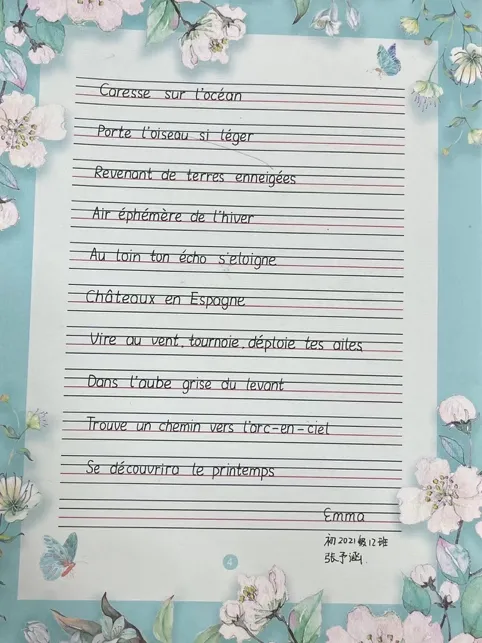 Caresse sur l'océan
Porte l'oiseau si léger
Revenant de terres enneigées
Air éphémère de l'hiver
Au loin ton écho s'eloigne
Châteaux en Espagne
Vire au vent, tournoie, déploie tes ailes
Dans l'aube grise du levant
Trouve un chemin vers l'arc-en-ciel
Se découvrira le printemps
Emma
初2021级12班
张予涵
4